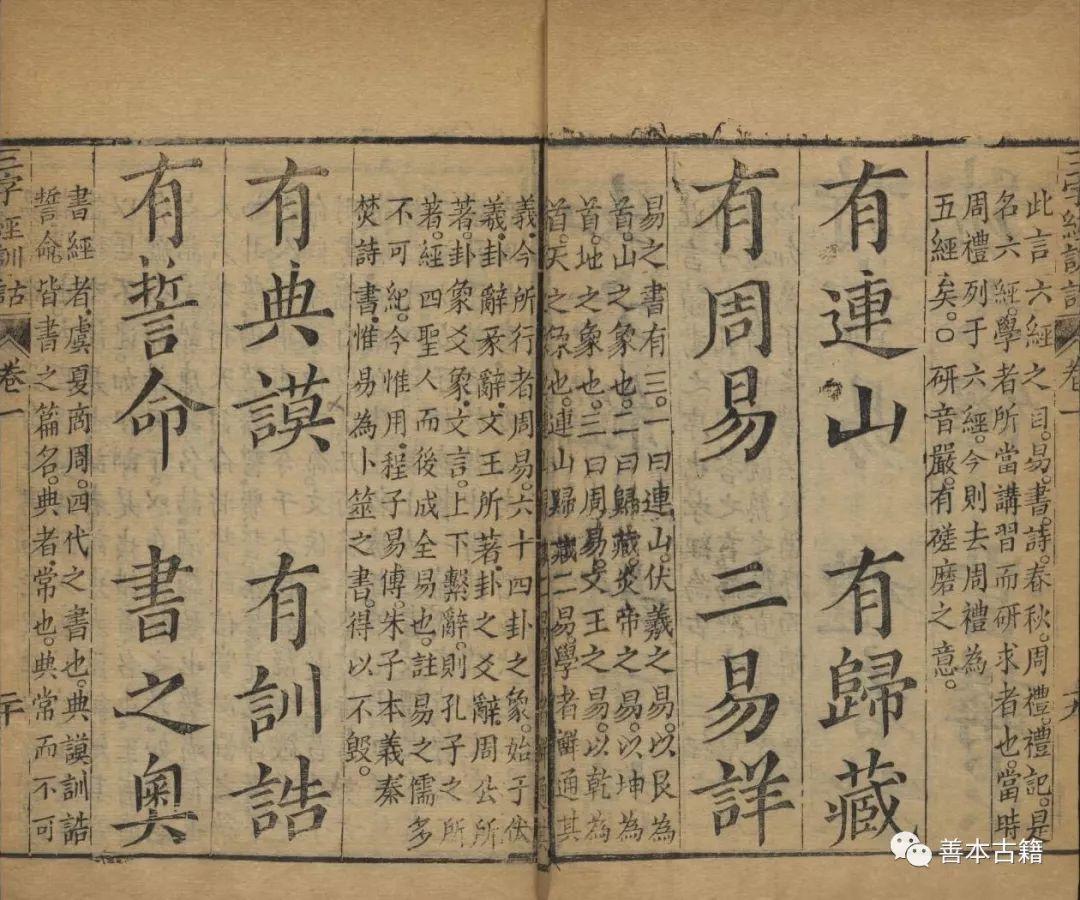 三字經訓詁
卷一
十九
此言六經之目。易。書。詩。春秋。周禮。禮記。是
名六經。學者所當講習而研求者也。當時
周禮列于六經。今則去周禮為
五經矣。○研音嚴。有磋磨之意。
有連山 有歸藏
有周易 三易詳
易之書有三。一曰連山。伏羲之易。以艮為
首。山之象也。二曰歸藏。炎帝之易。以坤為
首。地之象也。三曰周易。文王之易。以乾為
首。天之象也。連山歸藏二易。學者鮮通其
義。今所行者周易。六十四卦之象。始于伏
羲。卦辭彖辭。文王所著。卦之爻辭周公所
著。卦象爻象。文言。上下繫辭。則孔子之所
著。經四聖人而後成全易也。註易之儒多
不可紀。今惟用程子易傳。朱子本義秦
焚詩書。惟易為卜筮之書。得以不毀。
有典謨 有訓誥
有誓命 書之奧
書經者。虞夏商周。四代之書也。典謨訓誥
誓命。皆書之篇名。典者。常也。典常而不可
三字經訓詁
卷一
二十
善本古籍